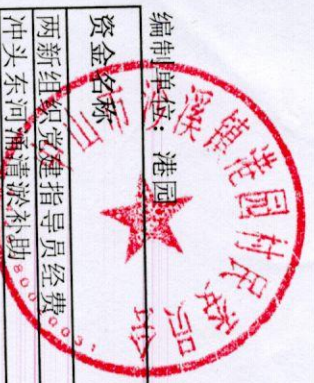 编制单位：港园
资金名称
两新组织党建指导员经费
冲头东河浦清淤补助
溪镇港园村民委员会